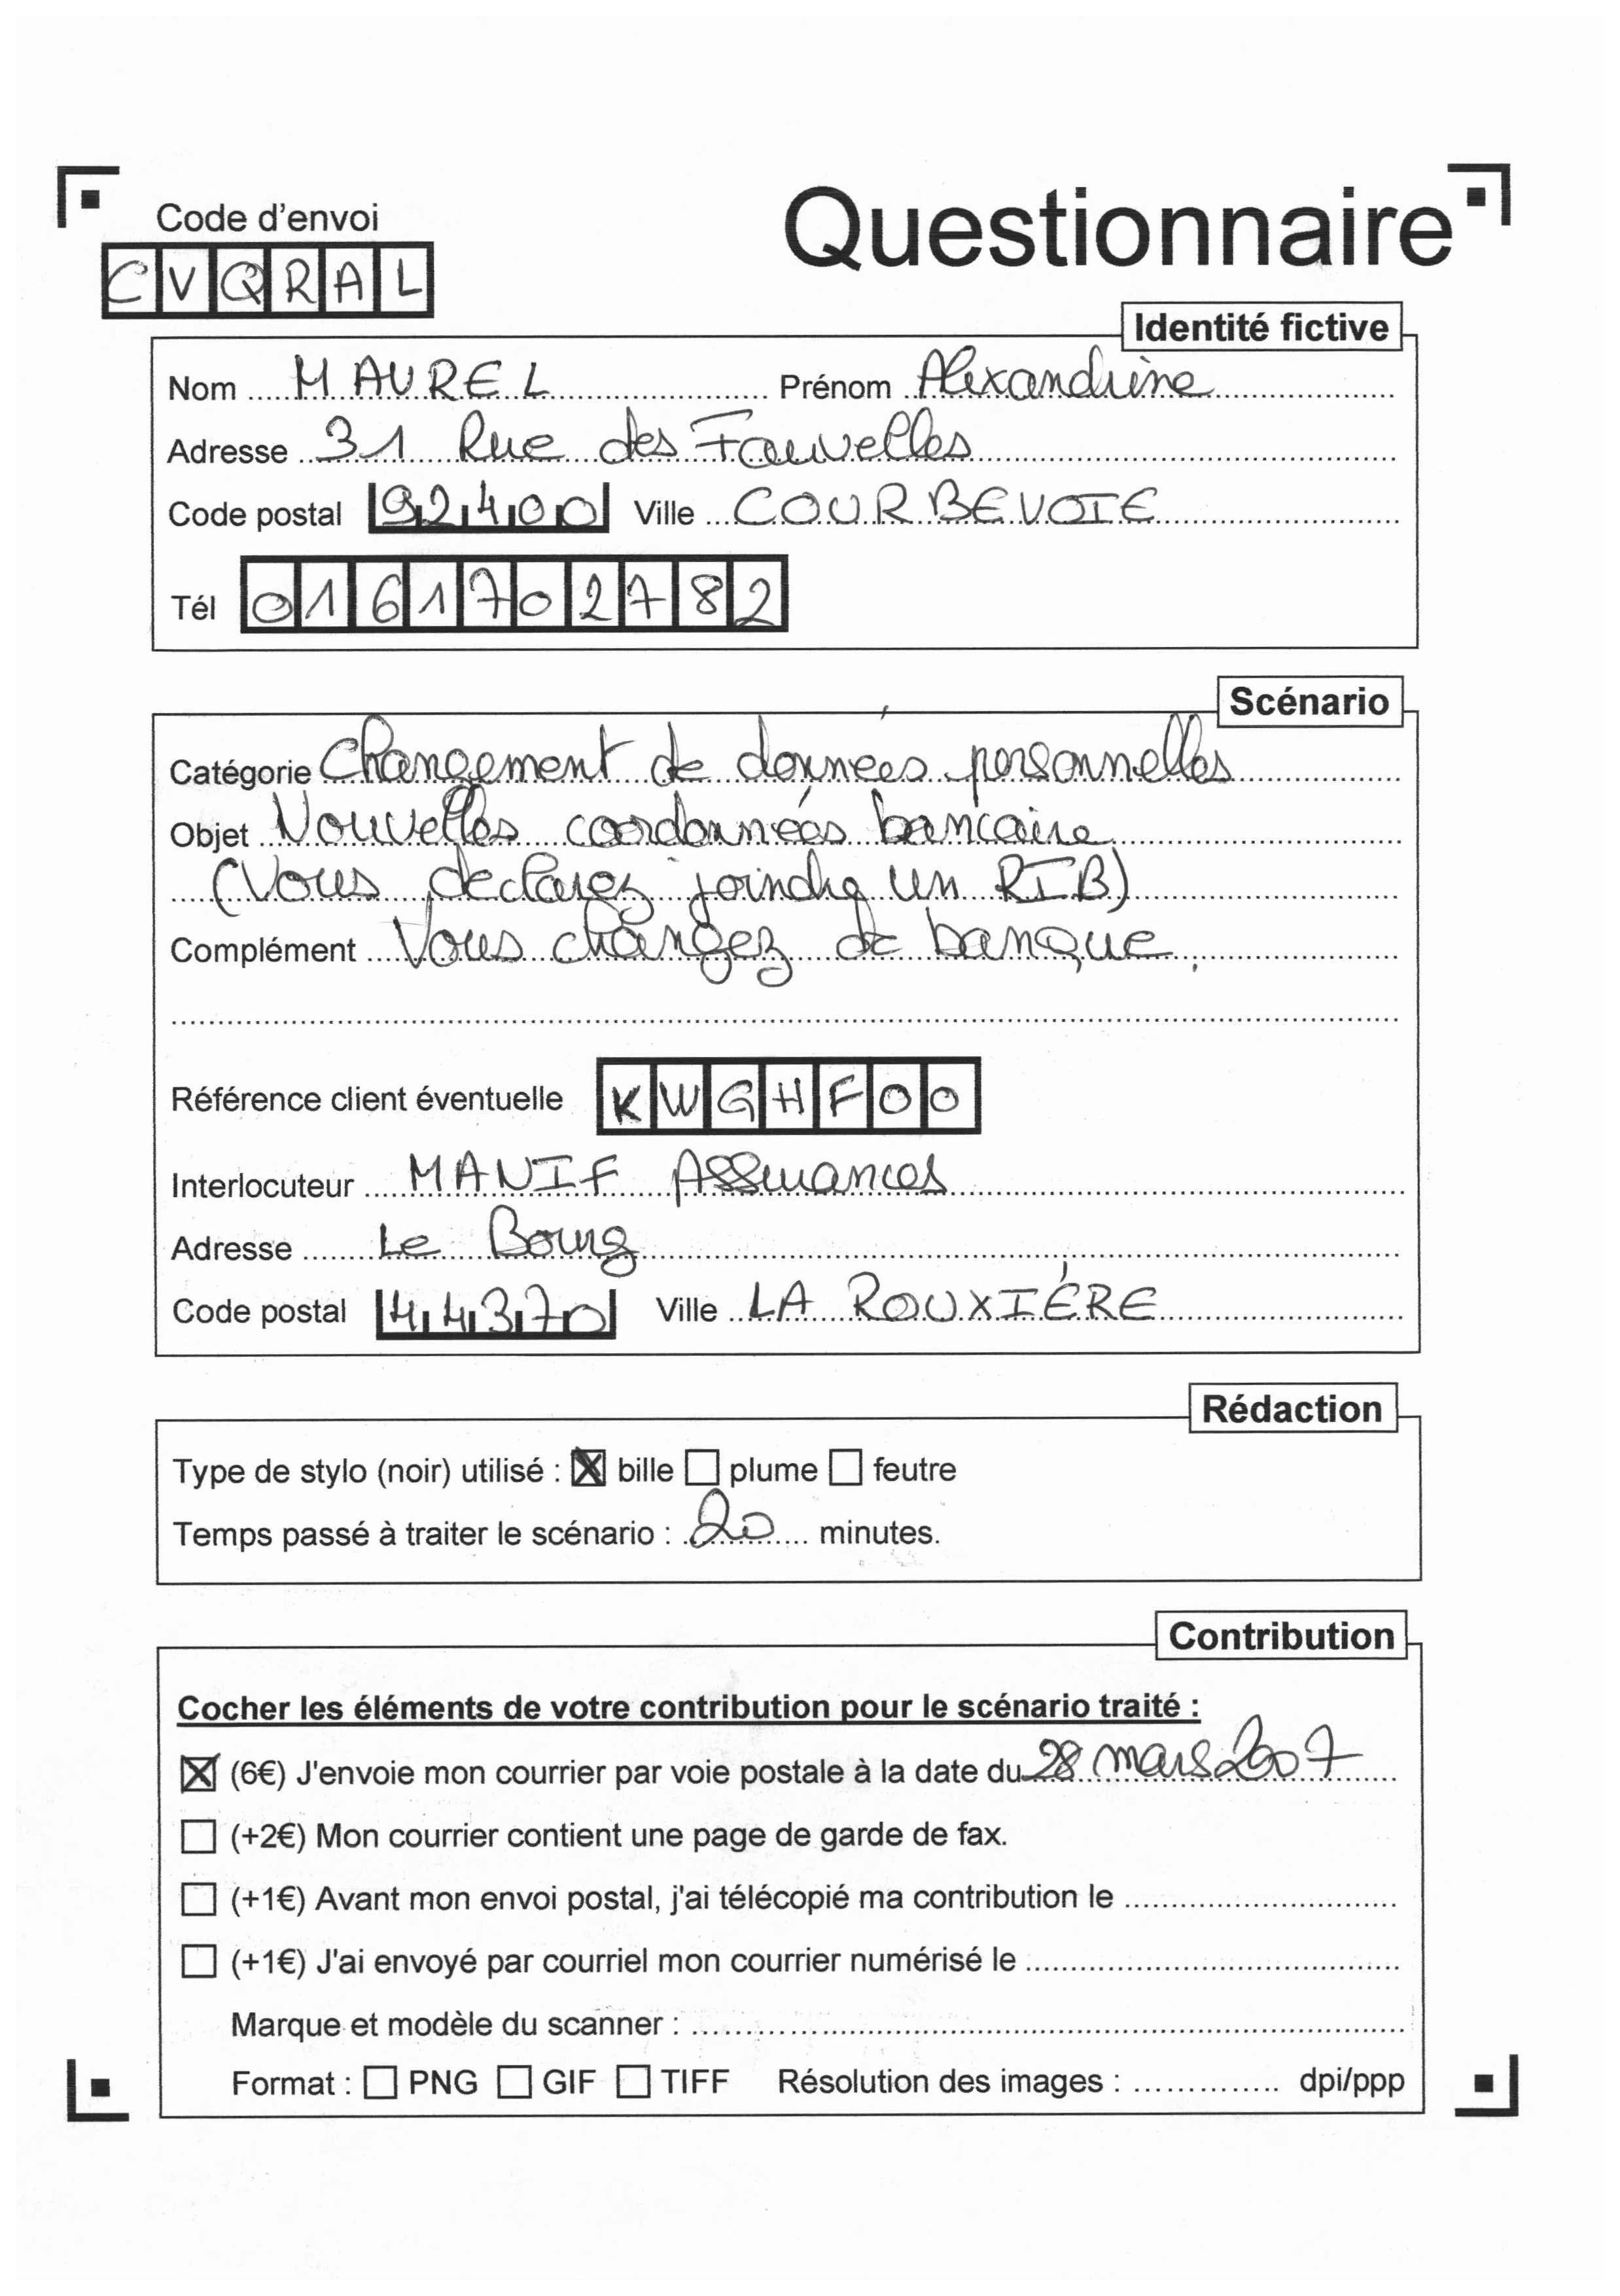 Code d'envoi
Questionnaire
CVQRAL
Identité fictive
Nom MAUREL Prénom Alexandrine
Adresse 31 Rue des Fauvelles
Code postal 92400 Ville COURBEVOIE
Tél 0161702782
Scénario
Catégorie Changement de données personnelles
Objet Nouvelles coordonnées bancaire
(Vous déclarez joindre un RIB)
Complément Vous changez de banque.
Référence client éventuelle KWGHF00
Interlocuteur MANIF Assurances
Adresse Le Bourg
Code postal 44370 Ville LA ROUXIÉRE
Rédaction
Type de stylo (noir) utilisé : ☒ bille ☐ plume ☐ feutre
Temps passé à traiter le scénario : 20 minutes.
Contribution
Cocher les éléments de votre contribution pour le scénario traité :
☒ (6€) J'envoie mon courrier par voie postale à la date du 28 mars 2007
☐ (+2€) Mon courrier contient une page de garde de fax.
☐ (+1€) Avant mon envoi postal, j'ai télécopié ma contribution le
☐ (+1€) J'ai envoyé par courriel mon courrier numérisé le
Marque et modèle du scanner :
Format : ☐ PNG ☐ GIF ☐ TIFF Résolution des images : dpi/ppp